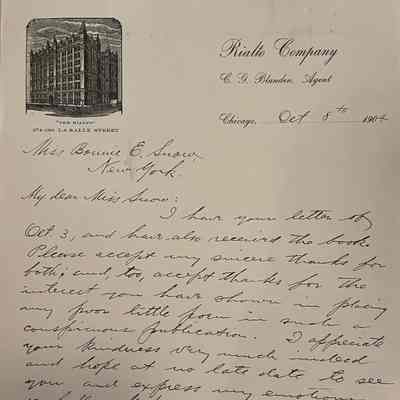 Rialto Company
C. G. Blunden, Agent
"THE RIALTO"
LA SALLE STREET
Chicago, Oct 8th 1904
Miss Bonnie E. Snow,
New York.
My dear Miss Snow:
I have your letter of
Oct. 3, and have also received the book.
Please accept my sincere thanks for
both; and, too, accept thanks for the
interest you have shown in placing
my poor little poem in such a
conspicuous publication. I appreciate
your kindness very much indeed
and hope at no late date to see
you and express my emotions